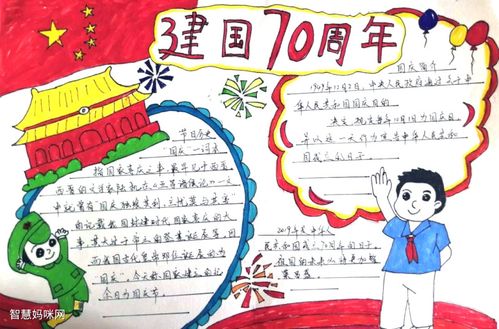 建国70周年
国庆简介
1949年12月2日，中央人民政府通过关于中
华人民共和国国庆日的
决定，规定每年10月1日为国庆日，
并以这一天作为宣告中华人民共和
国成立的日子。
节日历史
"国庆"一词，本
指国家喜庆之事，最早见于西晋。
西晋的文学家陆机在《五等诸侯论》一文
中记载有"国庆独
的记载我国封建时代国家喜庆的大
事，莫大过于帝王的登基诞辰等。因
而我国古代皇帝即位、诞辰称为
"国庆"。今天称国家建立的纪
念日为国庆节。
2019年是中华人
民共和国成立70周年的日子，
祖国的未来必将更加繁
荣昌盛。
智慧妈咪网